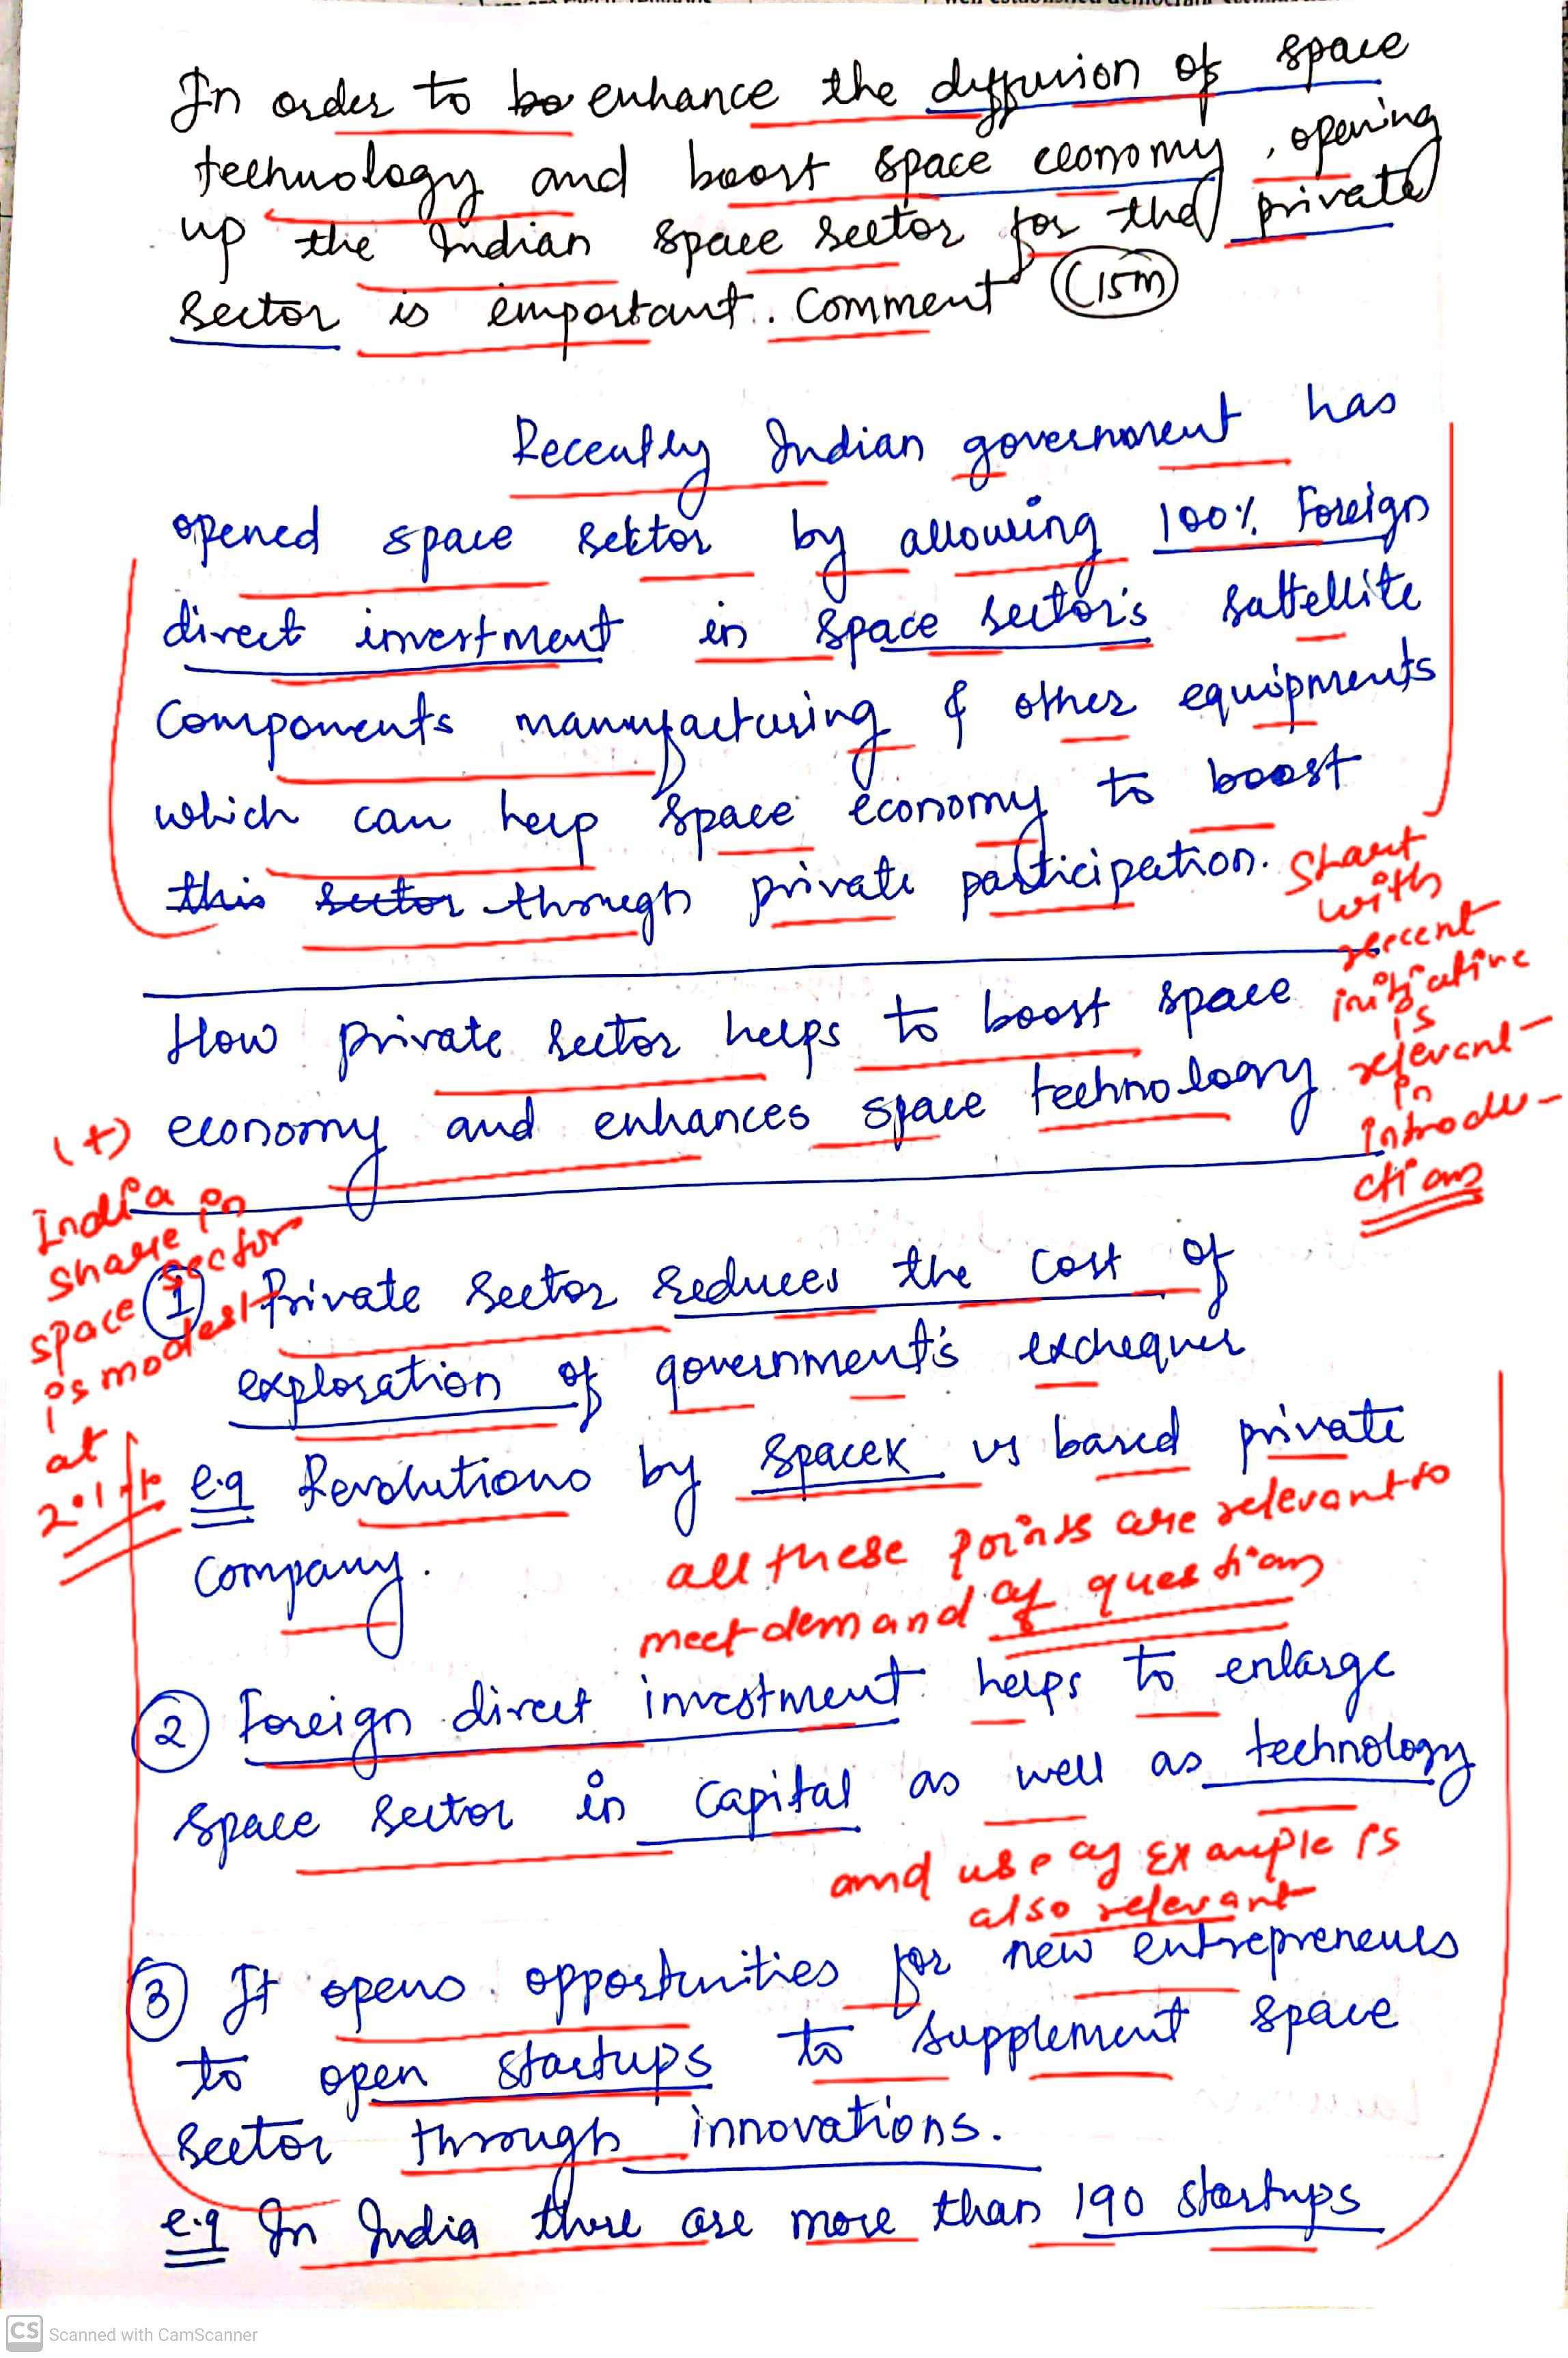 In order to be enhance the diffusion of space
technology and boost space economy, opening
up the Indian space sector for the private
sector is important. Comment (15m)
Recently Indian government has
opened space sektor by allowing 100% Foreign
direct investment in space sector's sattellite
components manufacturing & other equipments
which can help space economy to boost
this sector through private participation.
Start
with
recent
initiative
is
relevant
in
introdu-
ctions
How private sector helps to boost space
economy and enhances space technology
(+)
India
share in
space sector
is modest
at
2.1%
① Private sector reduces the cost of
exploration of government's exchequer
e.g Revolutions by SpaceX us based private
company.
all these points are relevant to
meet demand of questions
② Foreign direct investment helps to enlarge
space sector in capital as well as technology
and use of Example is
also relevant
③ It opens opportunities for new entrepreneurs
to open startups to supplement space
sector through innovations.
e.g In India there are more than 190 startups
CS Scanned with CamScanner